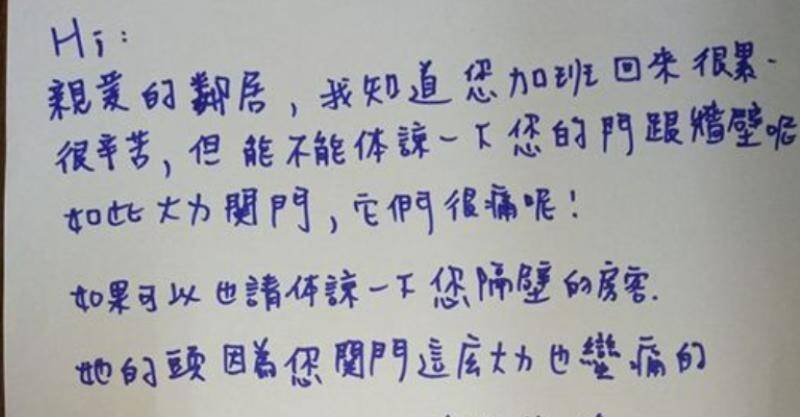 Hi:
親愛的鄰居,我知道您加班回來很累.
很辛苦,但能不能体諒一下您的門跟牆壁呢
如此大力関門,它們很痛呢!
如果可以也請体諒一下您隔壁的房客.
她的頭因為您関門這広大力也蠻痛的